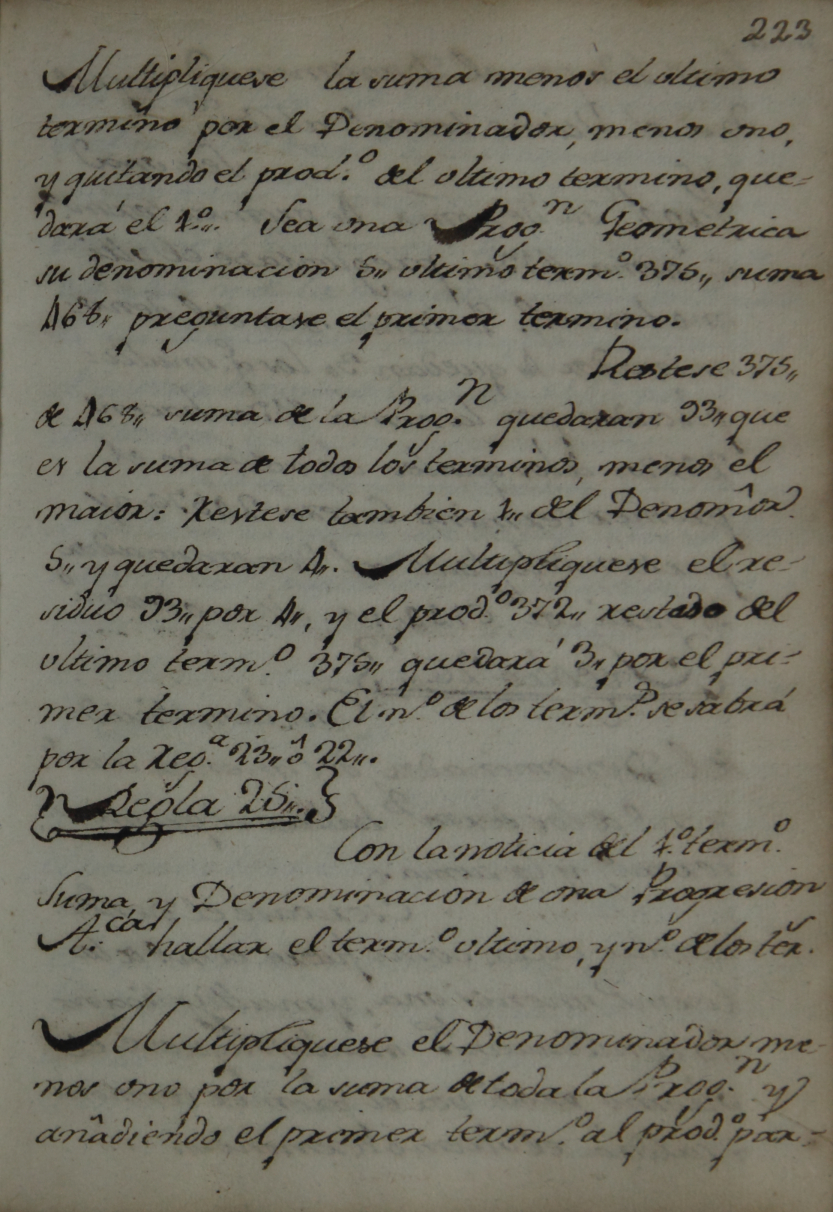 223
Multipliquese la suma menos el ultimo
termino por el Denominador, menos uno,
y quitando el prod.º del ultimo termino, que-
dará el 1.º,, Sea una Prog.n Geometrica
su denominacion 5,, ultimo term.º 375,, suma
468,, preguntase el primer termino.
Restese 375,,
de 468,, suma de la Prog.n quedaran 93,, que
es la suma de todos los terminos, menos el
maior: restese tambien 1,, del Denomôr
5,, y quedaran 4,,. Multipliquese el re-
siduo 93,, por 4,,, y el prod.º 372,, restado del
ultimo term.º 375,, quedará 3,, por el pri-
mer termino. El n.º de los term.s se sabrá
por la Reg.a 23,, ô 22,,.
Regla 25,,.
Con la noticia del 1.º term.º
Suma, y Denominacion de una Progresion
hallar el term.º ultimo, y n.º de los ter.
Multipliquese el Denominador me-
nos uno por la suma de toda la Prog.n y
añadiendo el primer term.º al prod.º par-